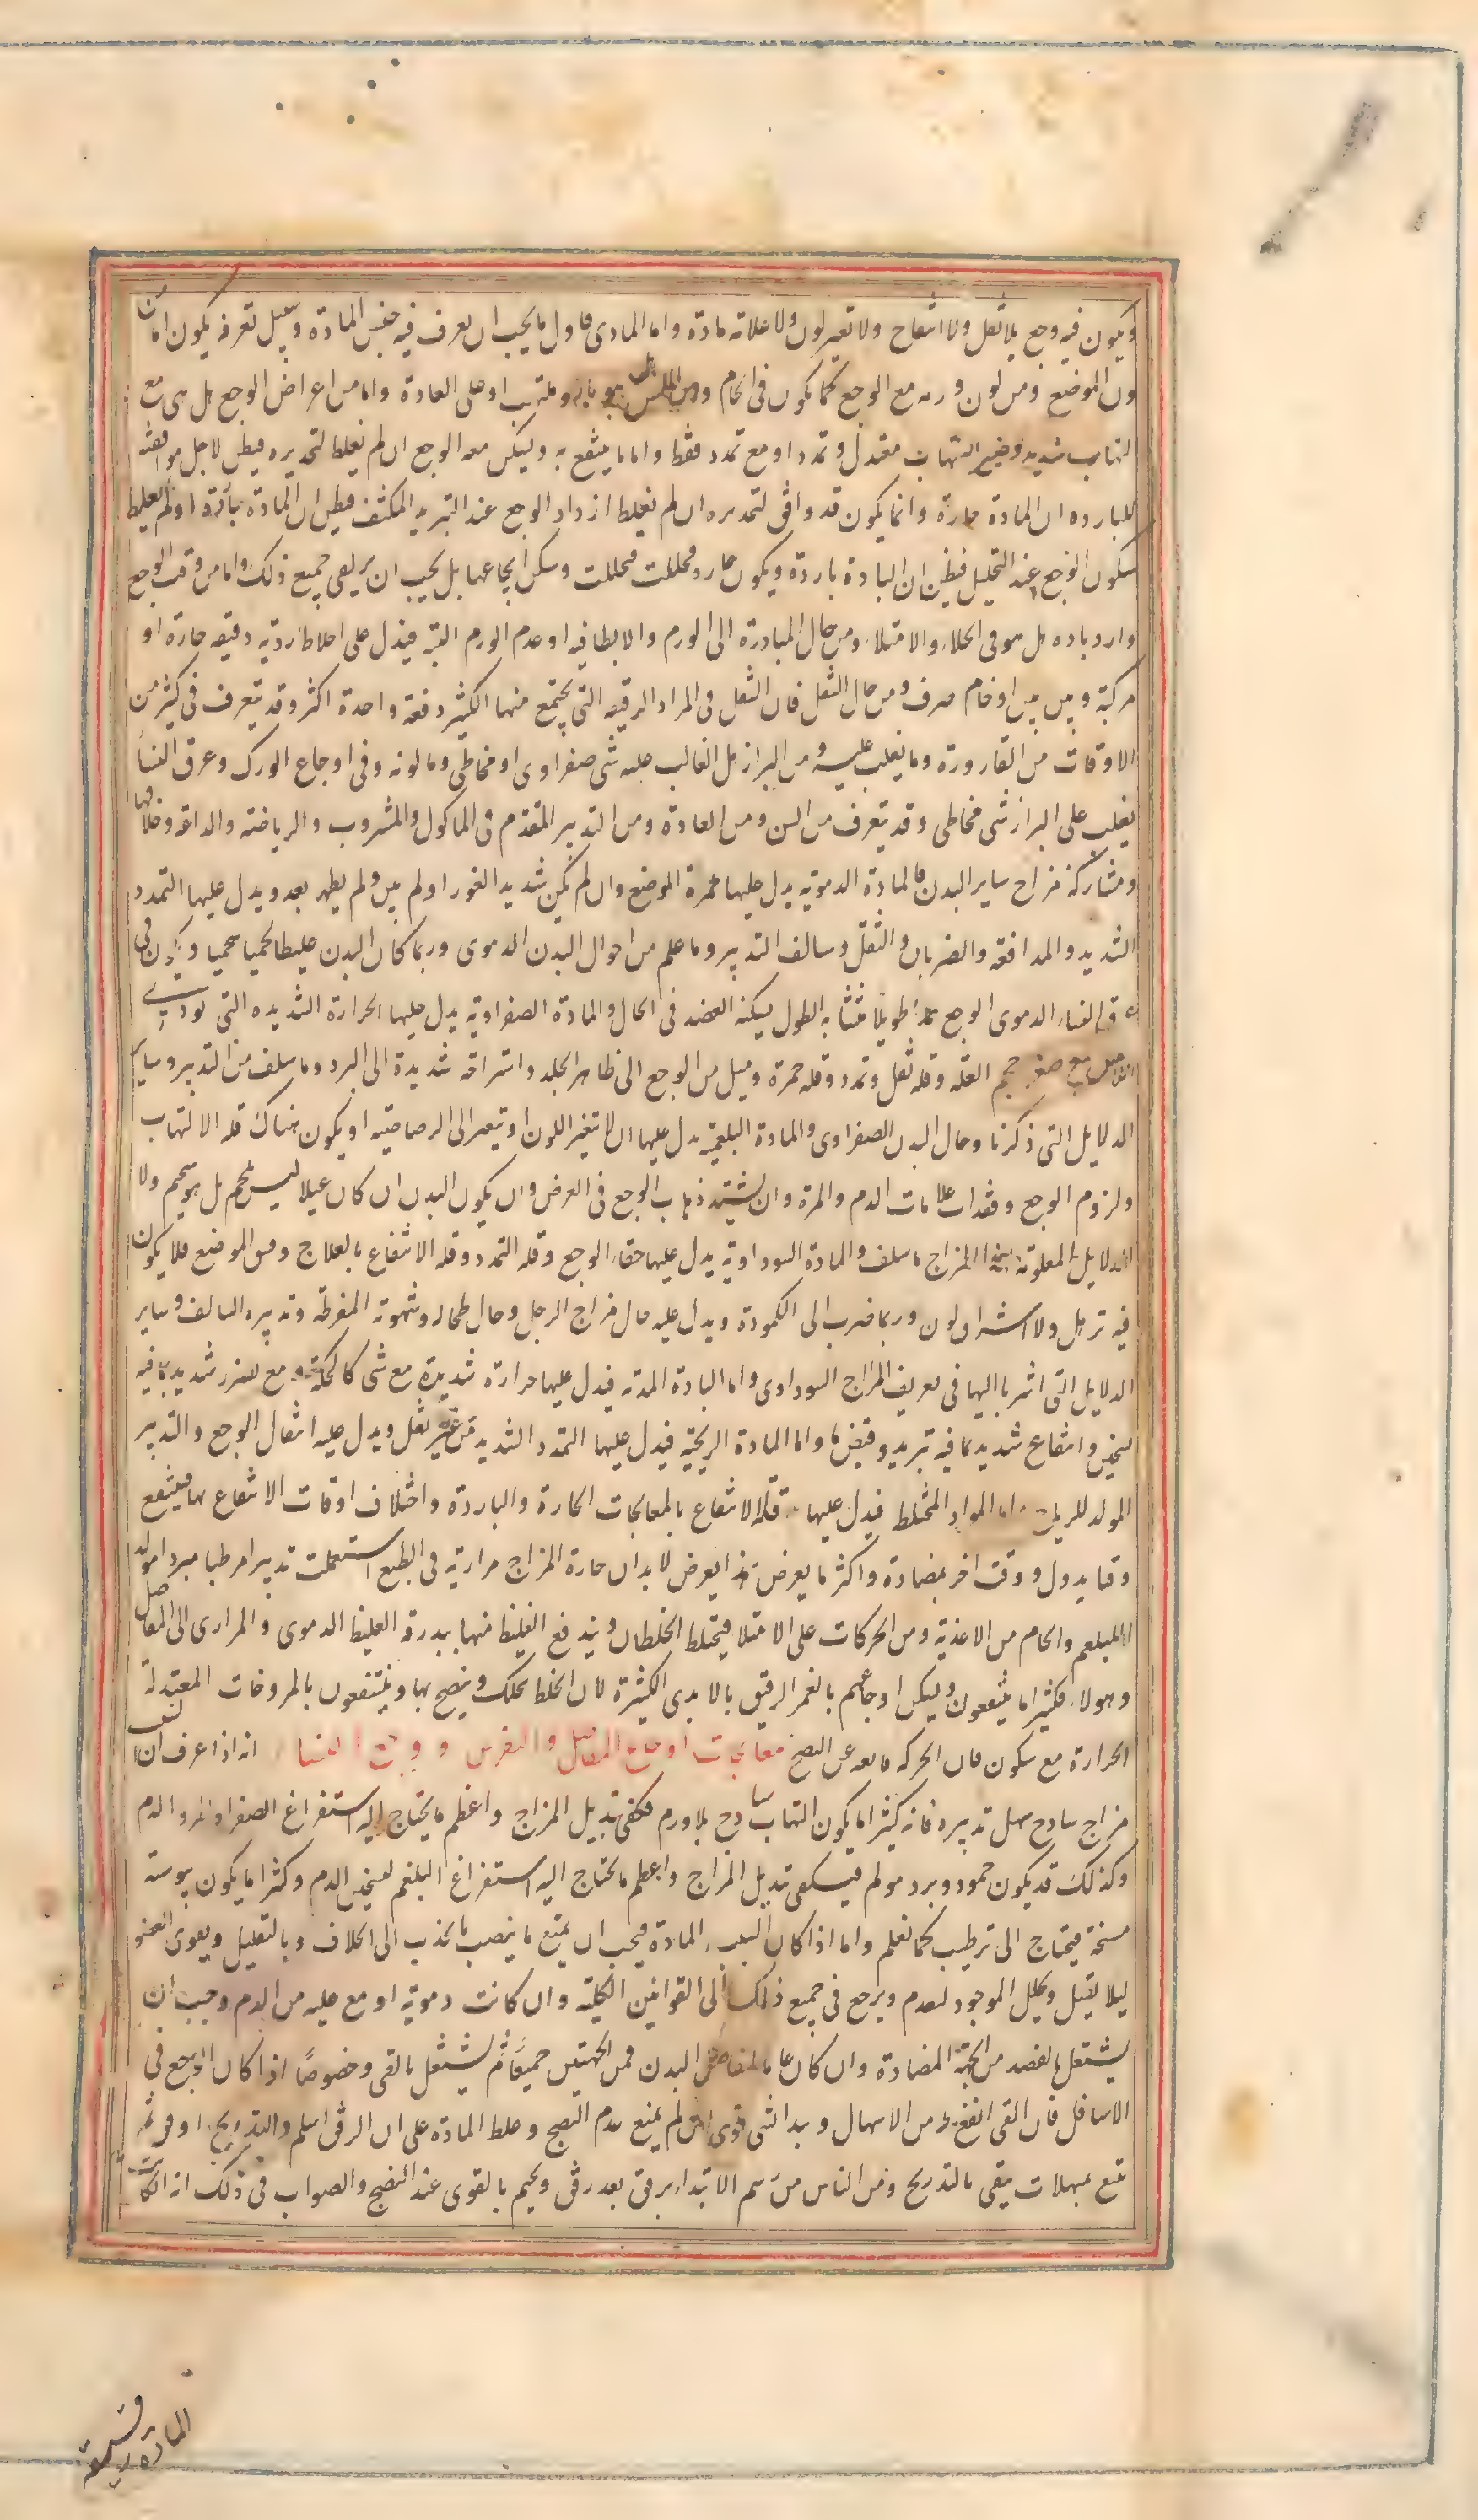 ويكون فيه وجع بلا ثقل ولا انتفاخ ولا تغير لون ولا علامة مادة واما المادى فاول ما يجب ان يعرف فيه جنس المادة وسبيل تعرفه يكون اما من
لون الموضع ومن لونه ورمه مع الوجع كما يكون فى الخام ومن الملمس هل هو بارد وملتهب او على العادة واما من اعراض الوجع هل هى مع
التهاب شديد وضير التهاب معتدل وتمدد او مع تمدد فقط واما ما ينتفع به ويسكن معه الوجع ان لم يغلط التخديره فيظن لاجل موافقته
للبارده ان المادة حارة وانما يكون قد وافق لتخديره ان لم يغلط ازدياد الوجع عند التبريد المكثف فيظن ان المادة باردة او لم يغلط
سكون الوجع عند التحليل فيظن ان المادة باردة ويكون حارة وتحللت فتحللت وسكن ايجاعها بل يجب ان يراعى جميع ذلك واما من وقت الوجع
وازدياده هل هو فى الخلاء والامتلاء ومن حال المبادرة الى الورم والابطا فيه او عدم الورم البتة فيدل على اخلاط ردية دقيقه حارة او
مركبة وبين بين او خام صرف ومن حال الثقل فان الثقل فى المواد الرقيقه التى يجتمع منها الكثير دفعة واحدة اكثر وقد يتعرف فى كثير من
الاوقات من القارورة وما يغلب عليه ومن البراز هل الغالب عليه شى صفراوى او مخاطى وما لونه وفى اوجاع الورك وعرق النسا
يغلب على البراز شى مخاطى وقد يتعرف من السن ومن العادة ومن التدبير المتقدم فى الماكول والمشروب والرياضة والدعة وخلافها
ومشاركة مزاج ساير البدن فالمادة الدموية يدل عليها حمرة الموضع وان لم يكن شديد الغور او لم يبن ولم يظهر بعد ويدل عليها التمدد
الشديد والمدافعة والضربان والثقل وسالف التدبير وما علم من احوال البدن الدموى وربما كان البدن عليظا لحيما شحيما ويكون فى
عرق النساء الدموى الوجع ممتدا طويلا متشابه الطول يسكنه الفصد فى الحال والمادة الصفراوية يدل عليها الحرارة الشديده التى توذى
اللامس مع صغر حجم العلة وقلة ثقل وتمدد وقلة حمرة وميل من الوجع الى ظاهر الجلد واستراحة شديدة الى البرد وما سلف من التدبير وساير
الدلايل التى ذكرنا وحال البدن الصفراوى والمادة البلغمية يدل عليها ان لا تغير اللون او تتغير الى الرصاصية او يكون هناك قلة الالتهاب
ولزوم الوجع وفقدان علامات الدم والمرة وان يشتد ذهاب الوجع فى العرض وان يكون البدن ان كان عبلا ليس بلحيم بل هو شحيم ولا
الدلايل المعلومة لهذا المزاج ما سلف والمادة السوداوية يدل عليها خفاء الوجع وقلة التمدد وقلة الانتفاع بالعلاج ومس الموضع فلا يكون
فيه ترهل ولا اشراق لون وربما ضرب الى الكمودة ويدل عليه حال مزاج الرجل وحال طحاله وشهوته المفرطة وتدبيره السالف وساير
الدلايل التى اشرنا اليها فى تعريف المزاج السوداوى واما المادة المدية فيدل عليها حرارة شديدة مع شى كالحكة ومع تضرر شديد بما فيه
تسخين وانتفاع شديد بما فيه تبريد وقبض ما واما المادة الريحية فيدل عليها التمدد الشديد من غير ثقل ويدل عليه انتقال الوجع والتدبير
المولد للريح واما المواد المختلطة فيدل عليها قلة الانتفاع بالمعالجات الحارة والباردة واختلاف اوقات الانتفاع بها فينتفع
وقتا بدواء ووقت اخر بمضادة واكثر ما يعرض هذا يعرض لابدان حارة المزاج مرارية فى الطبع استعملت تدبيرا مرطبا مبردا مولدا
للبلغم والخام من الاغذية ومن الحركات على الامتلاء فيختلط الخلطان ويندفع الغليظ منها ببدرقة الغليظ الدموى والمرارى الى المفاصل
وهولاء فكثيرا ما ينتفعون ويسكن اوجاعهم بالغمر الرقيق بالايدى الكثيرة لان الخلط يتحلك وينضج بها وينتفعون بالمروخات المعتدلة
الحرارة مع سكون فان الحركة مانعه عن النضج معالجات اوجاع المفاصل والنقرس ووجع النسا انه اذا عرف ان السبب
مزاج ساذج سهل تدبيره فانه كثيرا ما يكون التهاب ساذج بلا ورم فيكفى تبديل المزاج واعظم ما يحتاج اليه استفراغ الصفراء والدم
وكذلك قد يكون جمود وبرد مولم فيكفى تبديل المزاج واعظم ما يحتاج اليه استفراغ البلغم لتسخين الدم وكثيرا ما يكون يبوسته
مسخنة فيحتاج الى ترطيب كما تعلم واما اذا كان السبب المادة فيجب ان يمنع ما ينصب بالجذب الى الخلاف وبالتقليل ويقوى العضو
ليلا يقبل ويحلل الموجود ليعدم ويرجع فى جميع ذلك الى القوانين الكلية وان كانت دموية او مع غلبه من الدم وجب ان
يشتغل بالفصد من الجهة المضادة وان كان عاما لمفاصل البدن فمن الجهتين جميعا ثم يشتغل بالقى وخصوصا اذا كان الوجع فى
الاسافل فان القى انفع له من الاسهال ويبدا بشى قوى ان لم يمنع عدم النضج وغلظ المادة على ان الرفق اسلم والتدريج اوفى ثم
يتبع بمسهلات يبقى بالتدريج ومن الناس من رسم الابتدا برفق بعد رفق ويختم بالقوى عند النضج والصواب فى ذلك انه ان كانت
المادة رقيقة